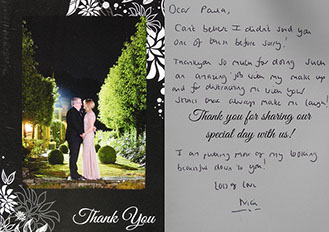 Thank You
Dear Paula,
Can't believe I didn't send you
one of them before sorry!
Thankyou so much for doing such
an amazing job with my make up
and for distracting me with your
stories they always make me laugh!
Thank you for sharing our
special day with us!
I am putting most of my looking
beautiful down to you!
Lots of Love